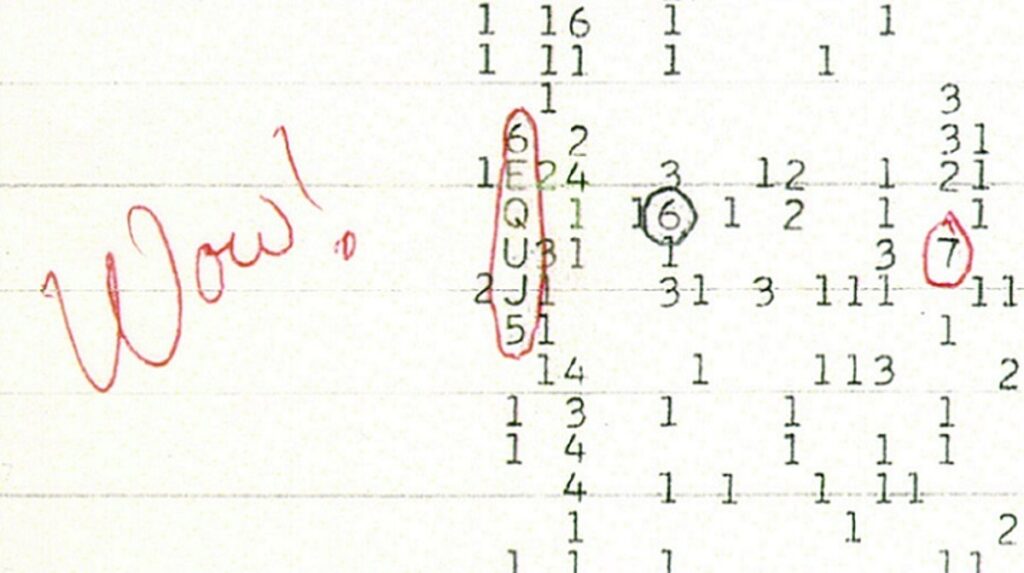 1 16 1 1
1 11 1 1
1 3
6 2 31
1E24 3 12 1 21
Q 1 16 1 2 1 1
U31 1 3 7
Wow!
2J1 31 3 111 11
51 1
14 1 113 2
1 3 1 1 1
1 4 1 1 1
4 1 1 1 11
1 1 2
1 1 1 11